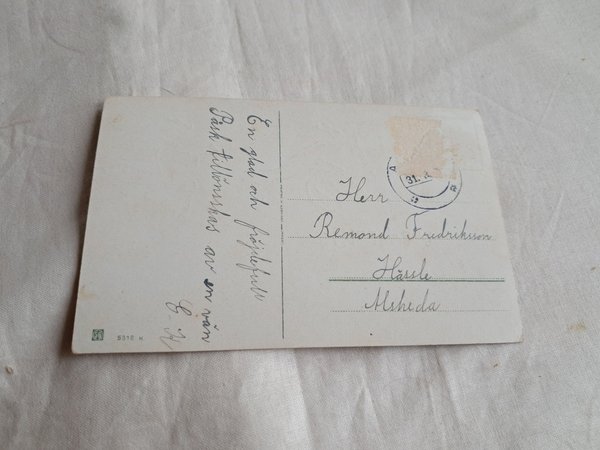 En glad och fröjdefull
Påsk tillönsskas av en vän
E H
Herr
Remond Fredriksson
Hässle
Alsheda
31.
5510 H